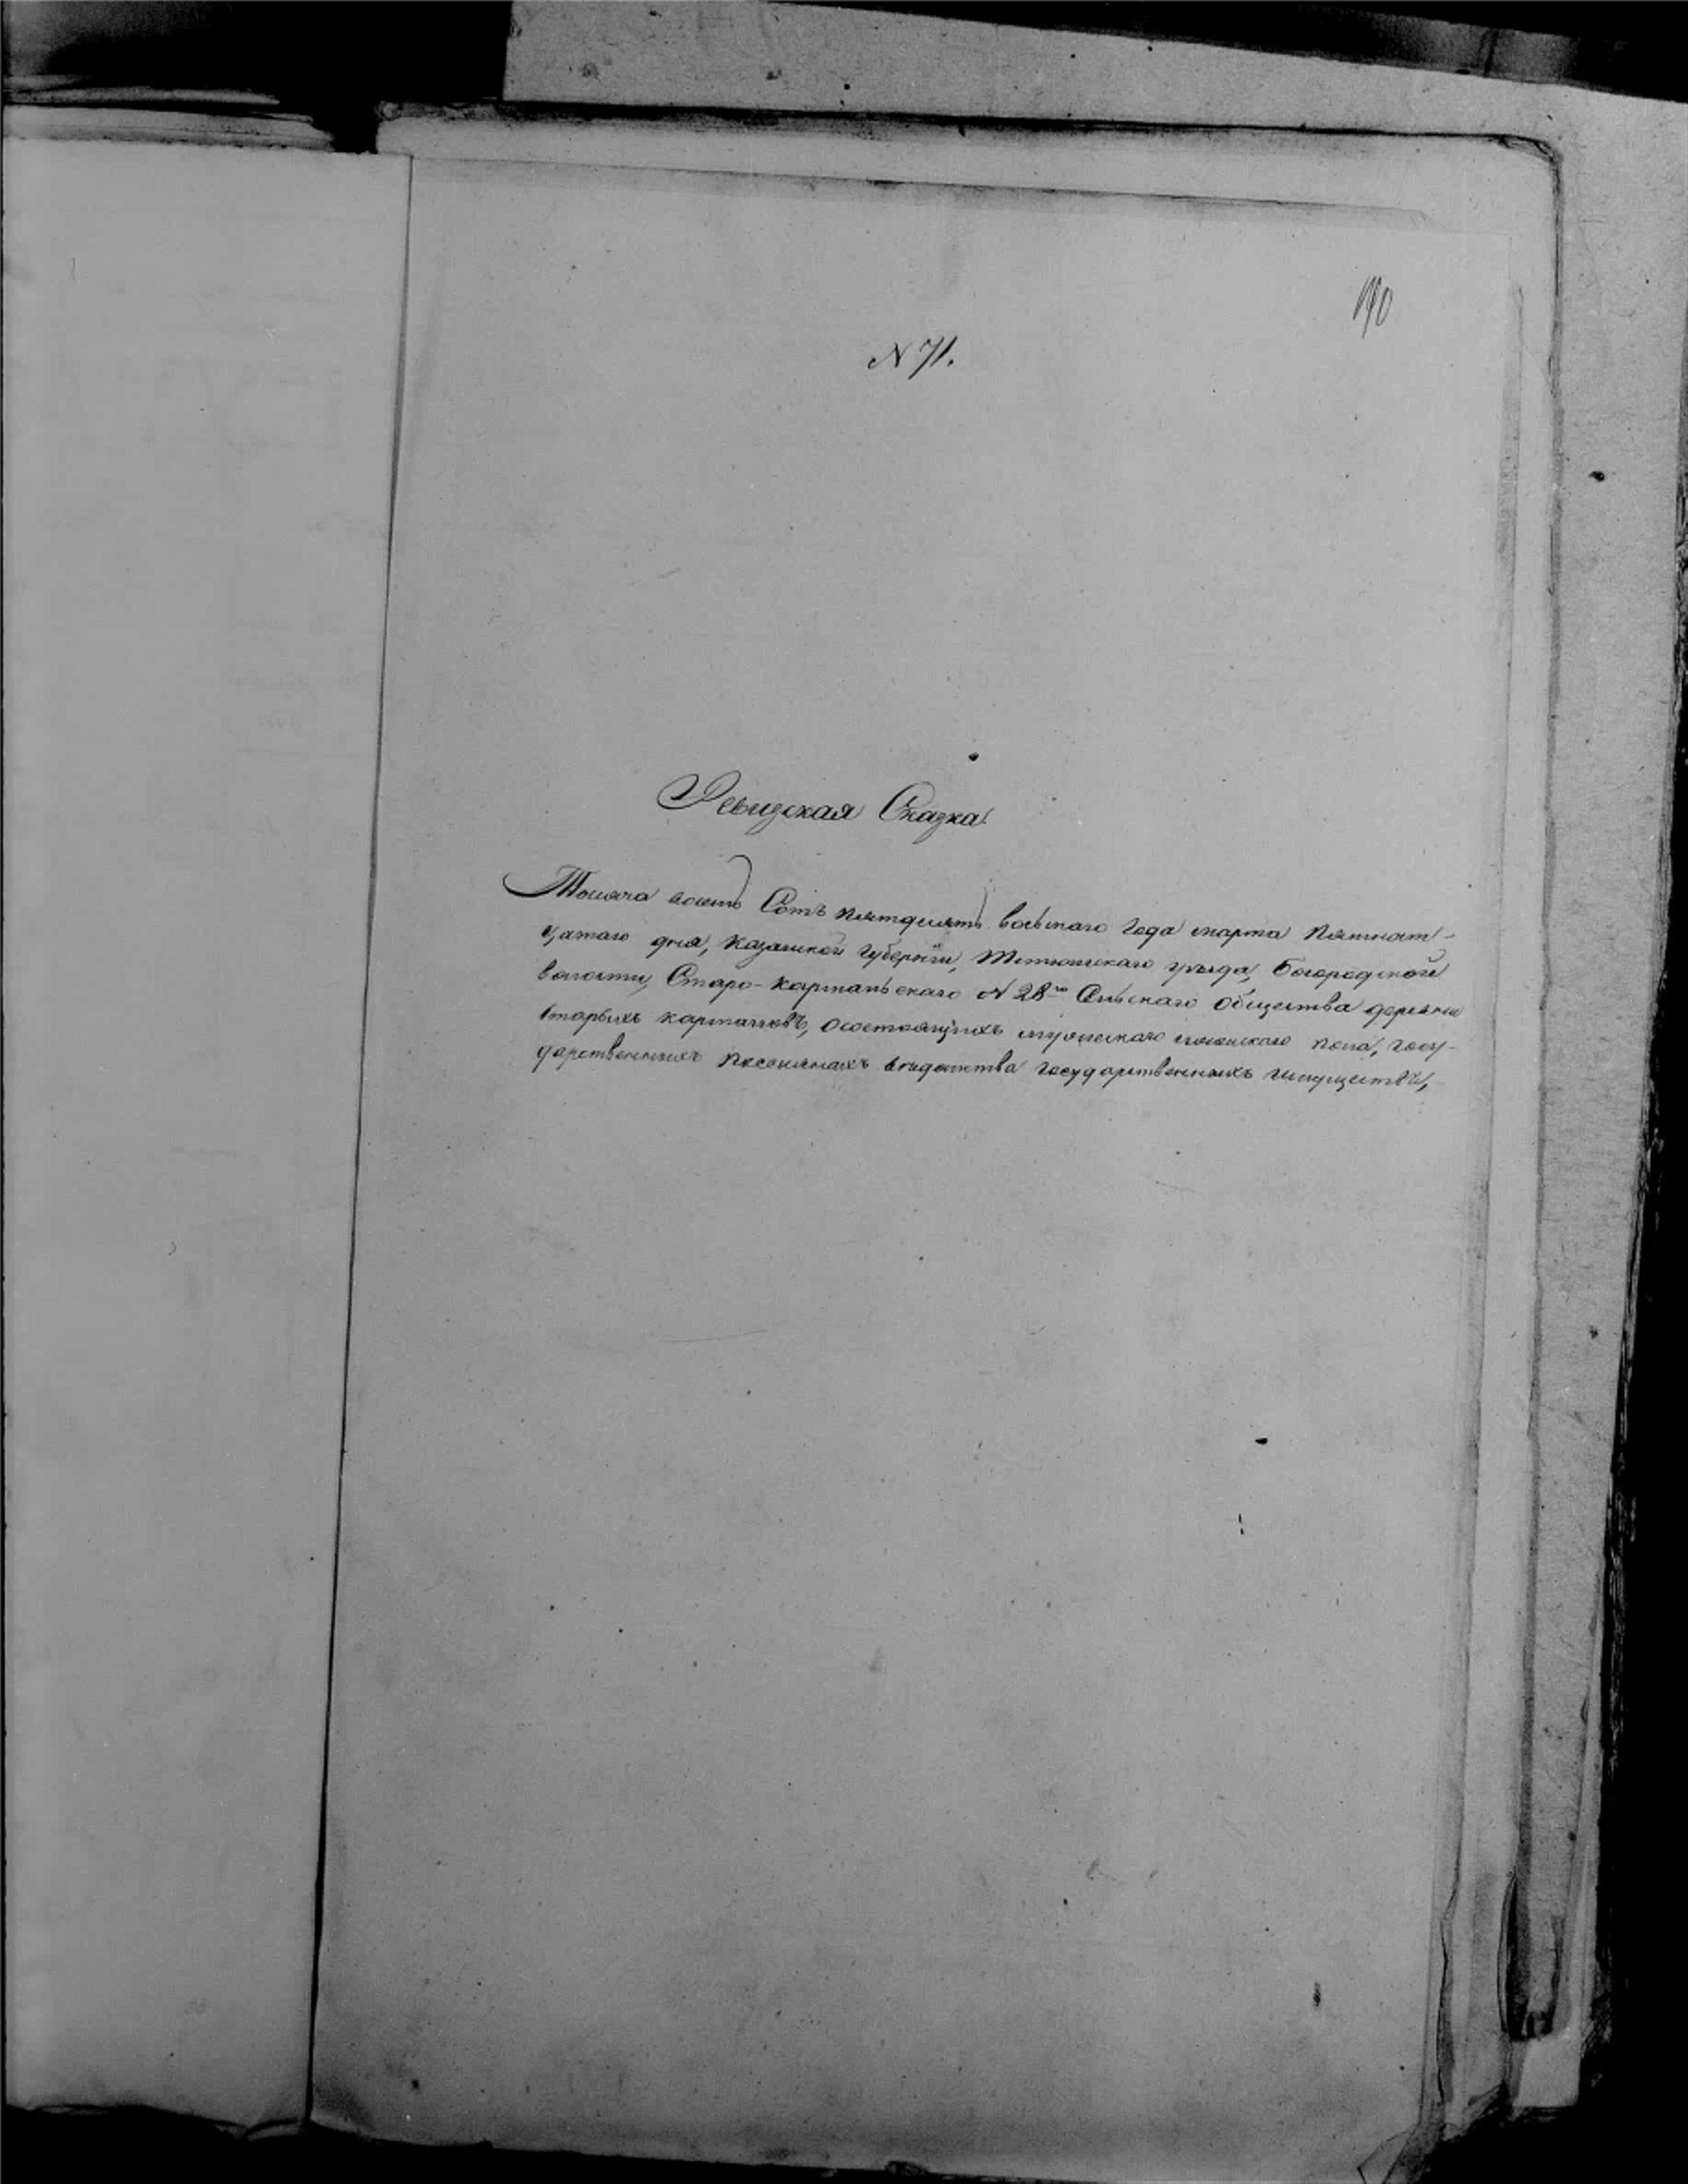 N 71.
Ревизская Сказка
Тысяча восемь Сотъ пятдесятъ восьмаго года марта пятнат-
цатаго дня, Казанской Губерніи, Тетюшскаго уѣзда, Богородской
волости, Старо-Картапьскаго N 28го Сельскаго общества деревни
Старыхъ картаповъ, о состоящихъ мужескаго и женскаго пола, госу-
дарственныхъ поселянахъ вѣдомства государственныхъ имуществъ,